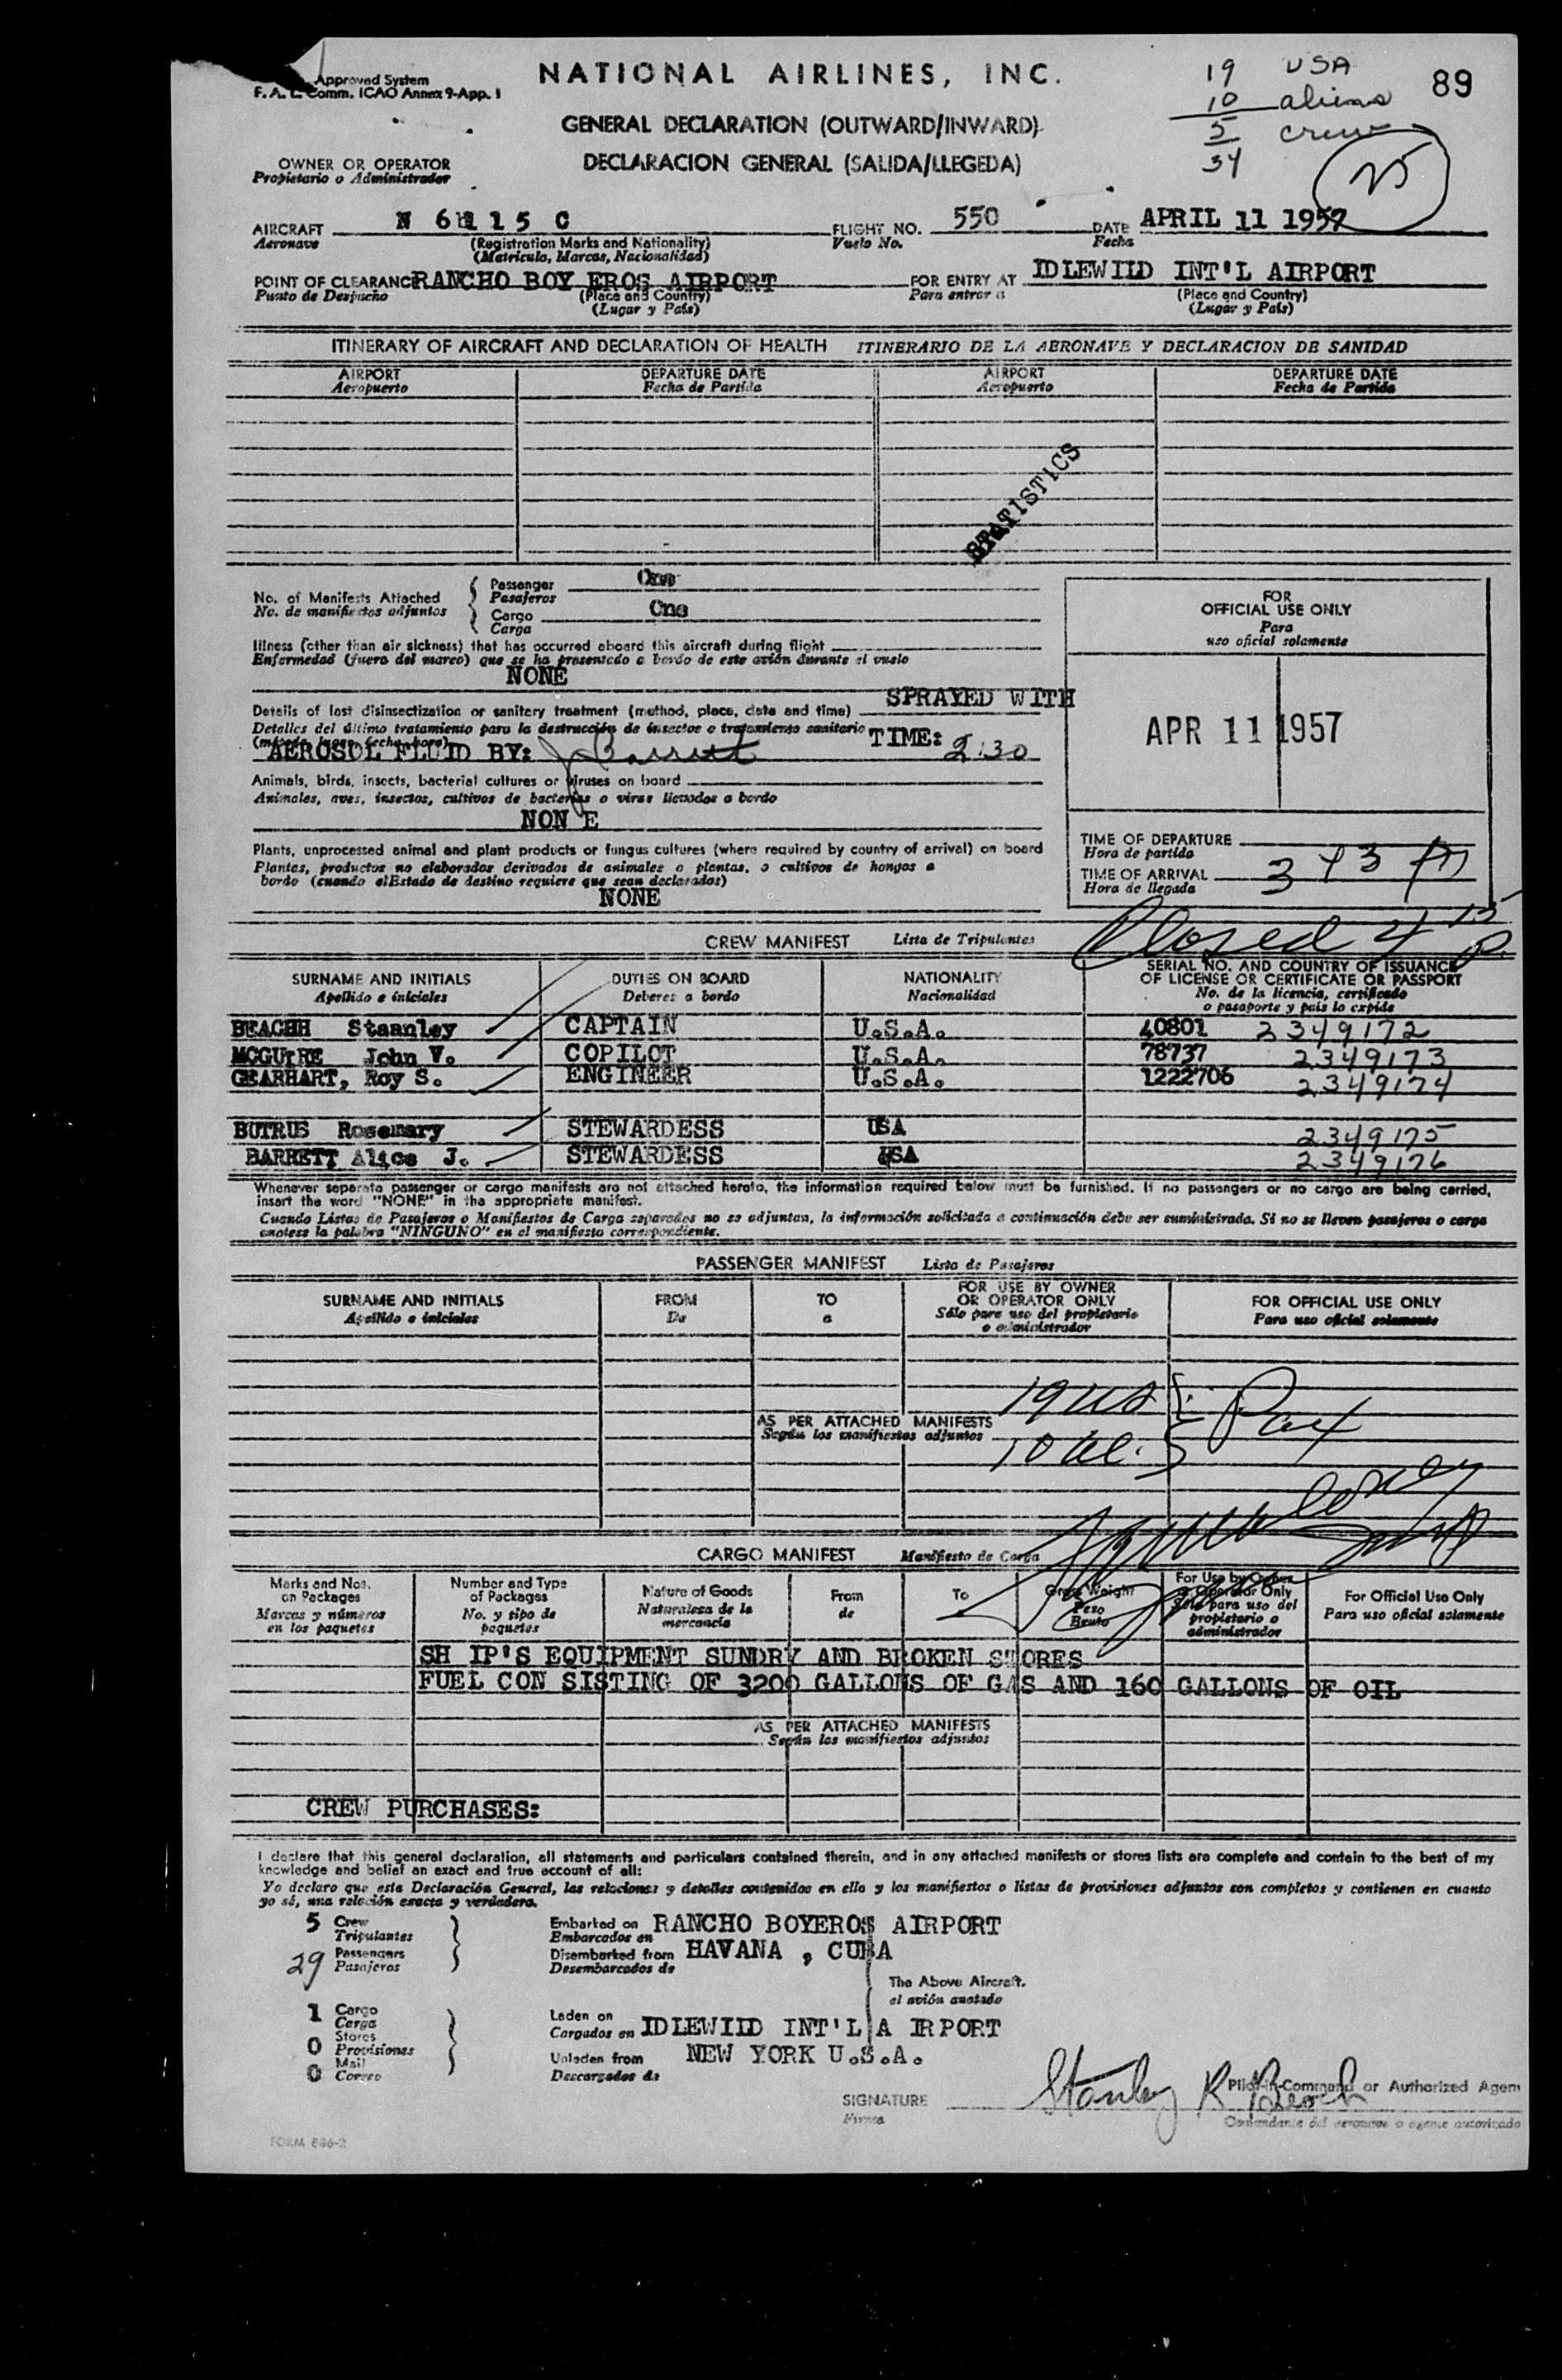 Approved System
F. A. L. Comm. (ICAO Annex 9-App. 1
NATIONAL AIRLINES, INC.
19 USA
10 aliens
5 crew
34
89
25
GENERAL DECLARATION (OUTWARD/INWARD)
DECLARACION GENERAL (SALIDA/LLEGEDA)
OWNER OR OPERATOR
Propietario o Administrador
AIRCRAFT N 6115 C FLIGHT NO. 550 DATE APRIL 11 1957
Aeronave (Registration Marks and Nationality) Vuelo No. Fecha
(Matricula, Marcas, Nacionalidad)
POINT OF CLEARANCE RANCHO BOY EROS AIRPORT FOR ENTRY AT IDLEWILD INT'L AIRPORT
Punto de Despacho (Place and Country) Para entrar a (Place and Country)
(Lugar y País) (Lugar y País)
ITINERARY OF AIRCRAFT AND DECLARATION OF HEALTH ITINERARIO DE LA AERONAVE Y DECLARACION DE SANIDAD
AIRPORT DEPARTURE DATE AIRPORT DEPARTURE DATE
Aeropuerto Fecha de Partida Aeropuerto Fecha de Partida
STATISTICS
No. of Manifests Attached Passenger One
No. de manifiestos adjuntos Pasajeros
Cargo One
Carga
FOR
OFFICIAL USE ONLY
Para
uso oficial solamente
Illness (other than air sickness) that has occurred aboard this aircraft during flight
Enfermedad (fuera del mareo) que se ha presentado a bordo de este avión durante el vuelo
NONE
Details of last disinsectization or sanitary treatment (method, place, date and time) SPRAYED WITH
Detalles del último tratamiento para la destrucción de insectos o tratamiento sanitario
(método, lugar, fecha, hora)
AEROSOL FLUID BY: J Barrett TIME: 2:30
APR 11 1957
Animals, birds, insects, bacterial cultures or viruses on board
Animales, aves, insectos, cultivos de bacterias o virus llevados a bordo
NON E
Plants, unprocessed animal and plant products or fungus cultures (where required by country of arrival) on board
Plantas, productos no elaborados derivados de animales o plantas, o cultivos de hongos a
bordo (cuando el Estado de destino requiere que sean declarados)
NONE
TIME OF DEPARTURE
Hora de partida
TIME OF ARRIVAL 343 PM
Hora de llegada
Closed 4 15 P.
CREW MANIFEST Lista de Tripulantes
SURNAME AND INITIALS DUTIES ON BOARD NATIONALITY SERIAL NO. AND COUNTRY OF ISSUANCE
OF LICENSE OR CERTIFICATE OR PASSPORT
Apellido e iniciales Deberes a bordo Nacionalidad No. de la licencia, certificado
o pasaporte y país lo expide
BEACHH Staanley CAPTAIN U.S.A. 40801 2349172
MCGUIRE John V. COPILOT U.S.A. 78737 2349173
GEARHART, Roy S. ENGINEER U.S.A. 1222706 2349174
BUTRUS Rosemary STEWARDESS USA 2349175
BARRETT Alice J. STEWARDESS USA 2349176
Whenever separate passenger or cargo manifests are not attached hereto, the information required below must be furnished. If no passengers or no cargo are being carried,
insert the word "NONE" in the appropriate manifest.
Cuando Listas de Pasajeros o Manifiestos de Carga separados no se adjuntan, la información solicitada a continuación debe ser suministrada. Si no se lleven pasajeros o carga
anotese la palabra "NINGUNO" en el manifiesto correspondiente.
PASSENGER MANIFEST Lista de Pasajeros
SURNAME AND INITIALS FROM TO FOR USE BY OWNER
OR OPERATOR ONLY FOR OFFICIAL USE ONLY
Apellido e iniciales De a Sólo para uso del propietario
o administrador Para uso oficial solamente
19 us
AS PER ATTACHED MANIFESTS
Según los manifiestos adjuntos
10 al. Pax
CARGO MANIFEST Manifiesto de Carga
Marks and Nos.
on Packages
Marcas y números
en los paquetes
Number and Type
of Packages
No. y tipo de
paquetes
Nature of Goods
Naturaleza de la
mercancia
From
de
To
a
Gross Weight
Peso
Bruto
For Use by Owner
or Operator Only
Sólo para uso del
propietario o
administrador
For Official Use Only
Para uso oficial solamente
SH IP'S EQUIPMENT SUNDRY AND BROKEN STORES
FUEL CON SISTING OF 3200 GALLONS OF GAS AND 160 GALLONS OF OIL
AS PER ATTACHED MANIFESTS
Según los manifiestos adjuntos
CREW PURCHASES:
I declare that this general declaration, all statements and particulars contained therein, and in any attached manifests or stores lists are complete and contain to the best of my
knowledge and belief an exact and true account of all:
Yo declaro que esta Declaración General, las relaciones y detalles contenidos en ella y los manifiestos o listas de provisiones adjuntos son completos y contienen en cuanto
yo sé, una relación exacta y verdadera.
5 Crew
Tripulantes
29 Passengers
Pasajeros
Embarked on RANCHO BOYEROS AIRPORT
Embarcados en
Disembarked from HAVANA , CUBA
Desembarcados de
The Above Aircraft.
el avión anotado
1 Cargo
Carga
0 Stores
Provisiones
0 Mail
Correo
Laden on
Cargados en IDLEWIID INT'L A IRPORT
Unladen from NEW YORK U.S.A.
Descargados de
SIGNATURE Stanley R Beach Pilot-in-Command or Authorized Agen
Firma Comandante del aeronave o agente autorizado
FORM 836-2